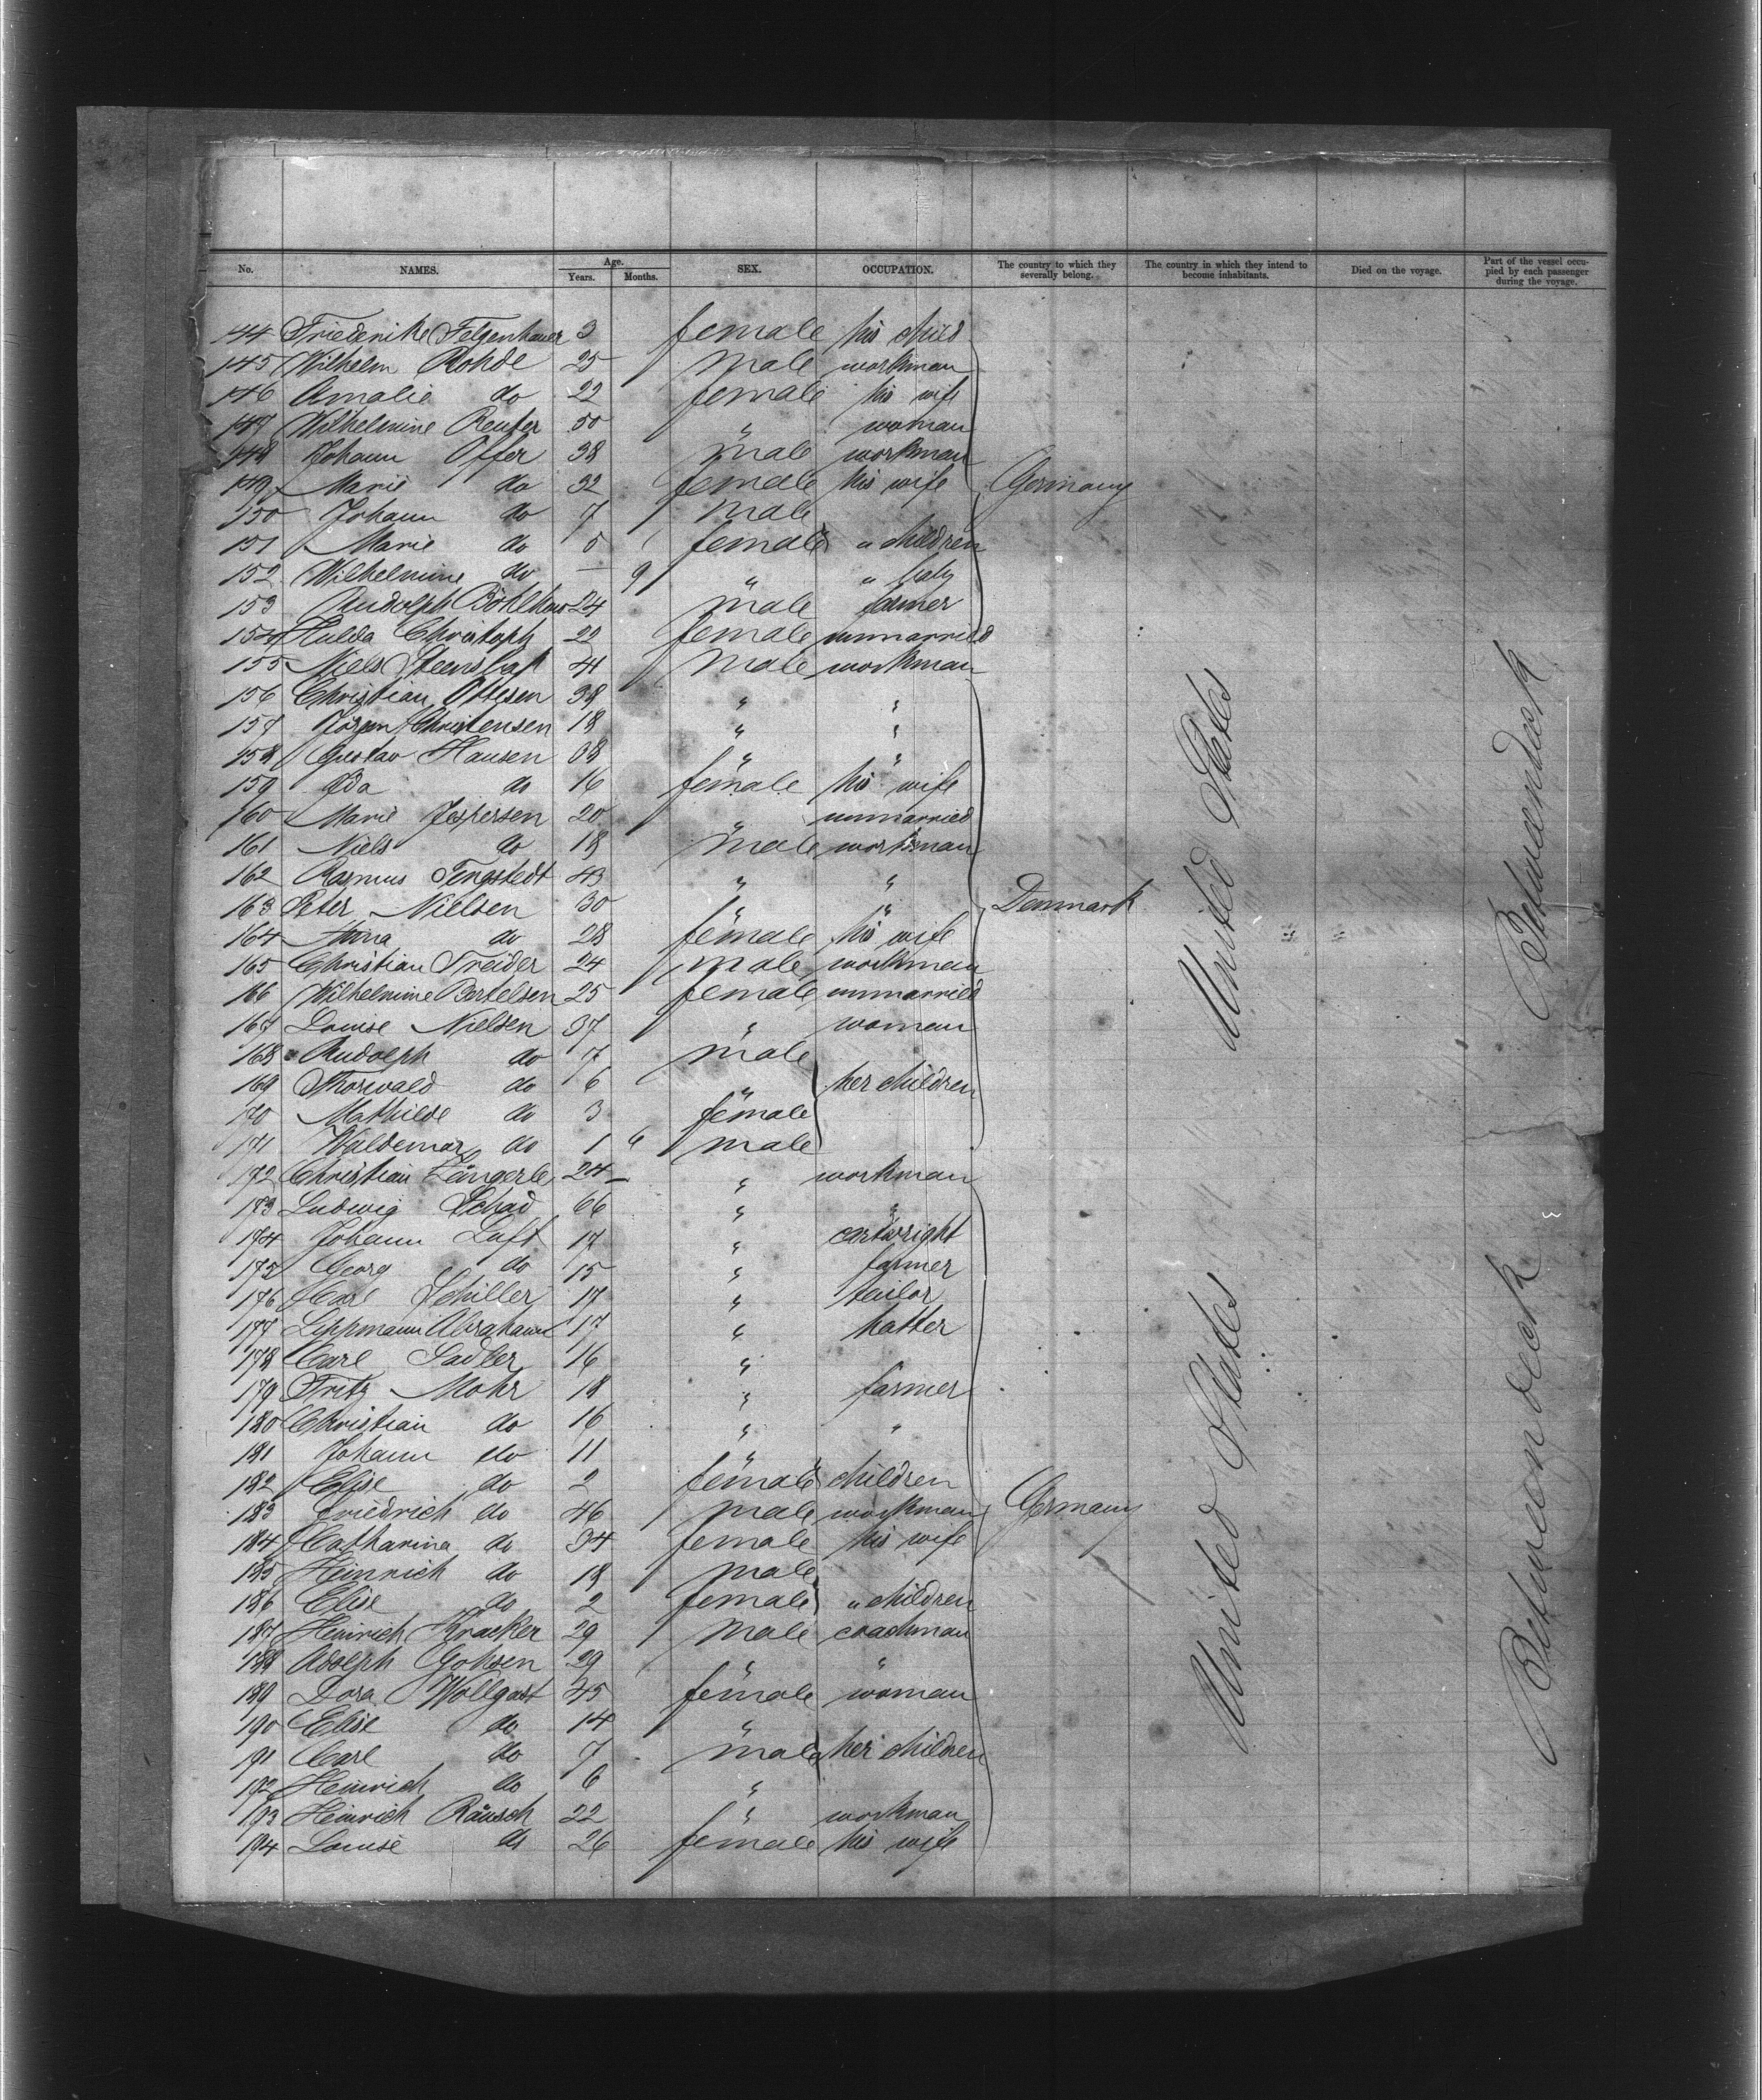 No. NAMES. Age. Years. Months. SEX. OCCUPATION. The country to which they severally belong. The country in which they intend to become inhabitants. Died on the voyage. Part of the vessel occupied by each passenger during the voyage.
144 Friederike Felgenhauer 3 female his child
145 Wilhelm Rohde 25 male workman
146 Amalie do 22 female his wife
147 Wilhelmine Reuter 50 " woman
148 Johann Offer 38 male workman
149 Marie do 32 female his wife Germany
150 Johann do 7 male
151 Marie do 5 female " children
152 Wilhelmine do — 9 " " baby
153 Rudolph 24 male farmer
154 Hulda Christoph 22 female unmarried
155 Niels 41 male workman
156 Christian Ottesen 38 " "
157 Jörgen Christensen 18 " "
158 Gustav Hansen 38 " "
159 Ida do 16 female his wife
160 Marie Jespersen 20 " unmarried
161 Niels do 18 male workman
162 Rasmus Tingstedt 43 " "
163 Peter Nielsen 30 " " Denmark
164 Anna do 28 female his wife
165 Christian Freider 24 male workman
166 Wilhelmine Bertelsen 25 female unmarried
167 Louise Nielsen 37 " woman
168 Rudolph do 7 male
169 Thorwald do 6 " her children
170 Mathilde do 3 female
171 Waldemar do 1 6 male
172 Christian Zängerle 24 — " workman
173 Ludwig Schad 66 " "
174 Johann Luft 17 " cartwright
175 Georg do 15 " farmer
176 Carl Schiller 17 " tailor
177 Lippmann Abraham 17 " hatter
178 Carl Sadler 16 "
179 Fritz Mohr 18 " farmer
180 Christian do 16 " "
181 Johann do 11 "
182 Elise do 2 female children
183 Friedrich do 46 male workman Germany
184 Catharina do 34 female his wife
185 Heinrich do 18 male
186 Elise do 2 female " children
187 Heinrich Kracker 29 male coachman
188 Adolph Gohsen 29 " "
189 Dora Wollgast 45 female woman
190 Elise do 14 "
191 Carl do 7 male her children
192 Heinrich do 6 "
193 Heinrich Räusch 22 " workman
194 Louise do 26 female his wife
United States
United States
Betweendeck
Betweendeck